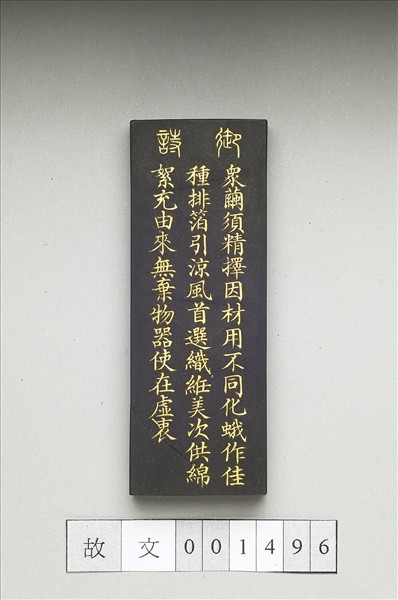 御詩
衆繭須精擇因材用不同化蛾作佳
種排箔引涼風首選織絍美次供綿
絮充由來無棄物器使在虛衷
故文001496